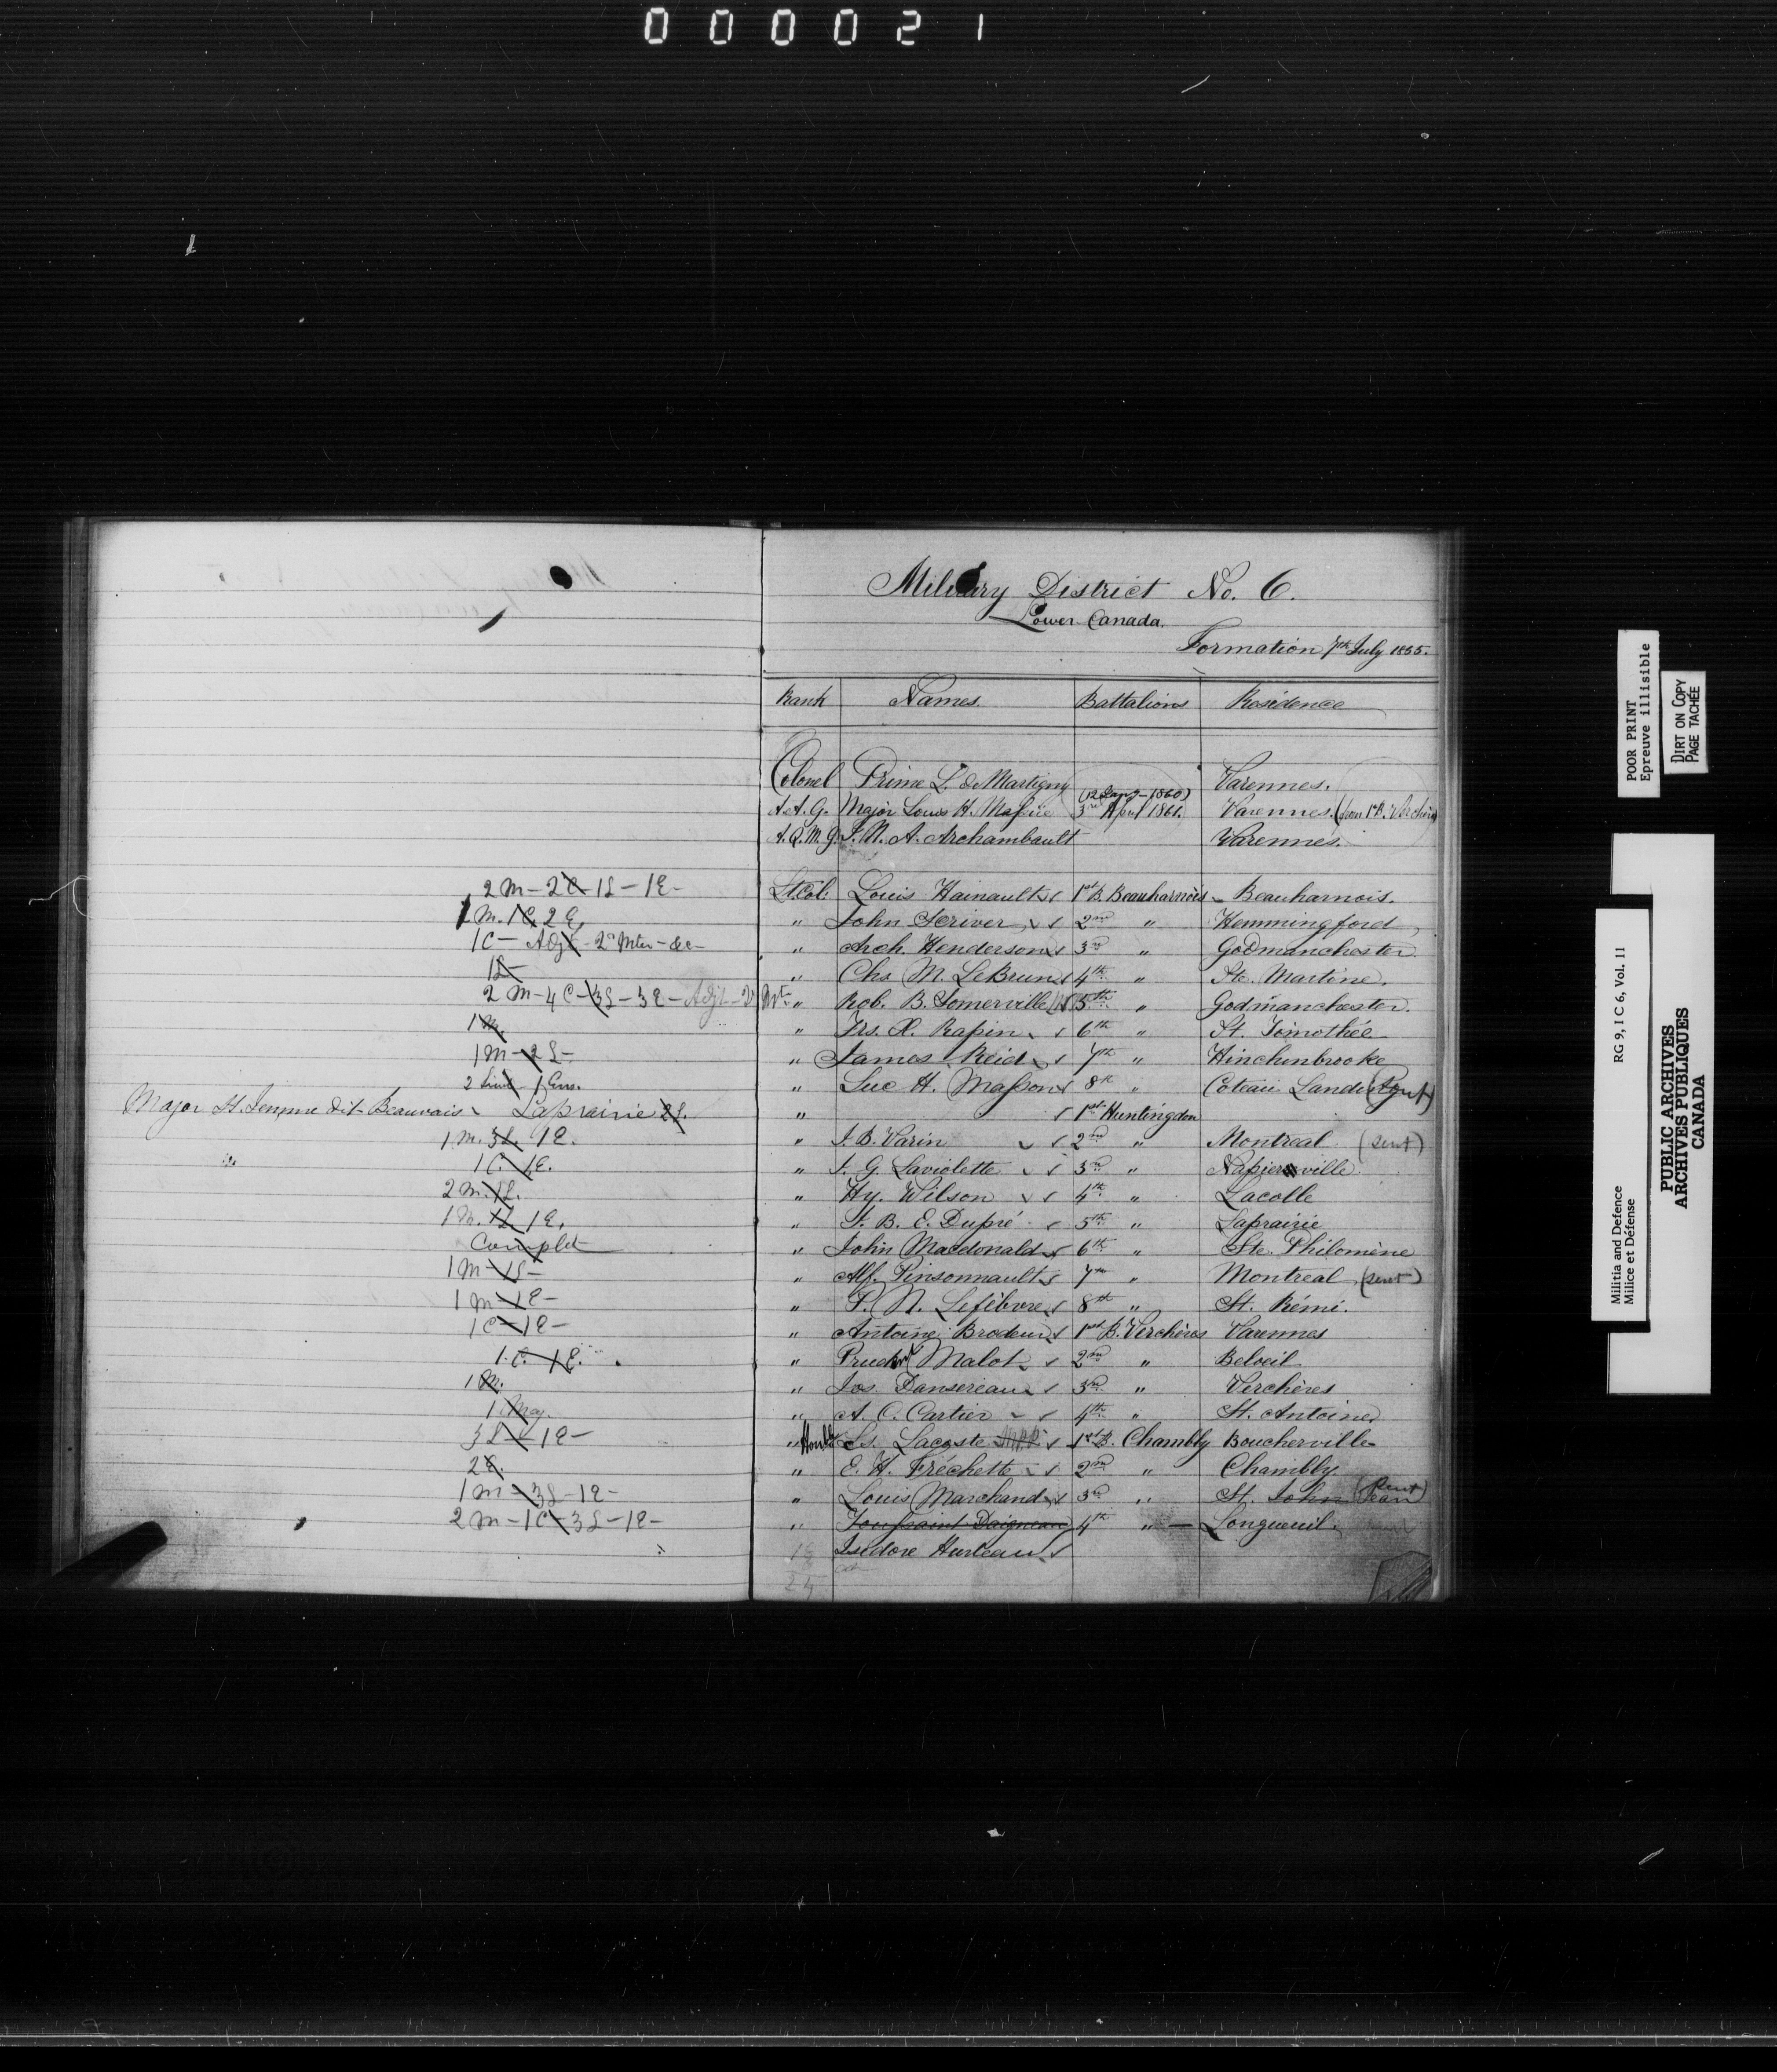 000021
Military District No. 6.
Lower Canada.
Formation 7th July 1855.
Rank Names. Battalions Residence
Colonel Prime L. de Martigny Varennes.
(12 Jany - 1860)
A.A.G. Major Louis H. Massue 3rd April 1861. Varennes. (from 1st B. Verchères
A.Q.M.G. J. N. A. Archambault Varennes.
2 M - 2 C - 1 L - 1 E - Lt. Col. Louis Hainault 1st B. Beauharnois Beauharnois.
1 M. 1 C. 2 E. " John Scriver 2nd " Hemmingford,
1 C - Adjt - 2r Mter - &c - " Arch. Henderson 3rd " Godmanchester.
1 L - " Chs. M. LeBrun 4th " Ste. Martine.
2 M - 4 C - 3 L - 3 E - Adjt - 2r Mr. " Rob. B. Somerville 5th " Godmanchester.
1 M. " Frs. X. Rapin 6th " St. Timothée
1 M - 2 L - " James Reid 7th " Hinchinbrooke
2 Lieut - 1 Ens. " Luc H. Masson 8th " Coteau Landing
Major St. Jemme dit Beauvais Laprairie 2 L. " 1st Huntingdon
1 M. 3 L. 1 E. " J. B. Varin 2nd " Montreal (sent)
1 C. 1 E. " J. G. Laviolette 3rd " Napierville.
2 M. 1 L. " Hy. Wilson 4th " Lacolle
1 M. 1 L. 1 E. " J. B. E. Dupré 5th " Laprairie
Complet " John Macdonald 6th " Ste. Philomène
1 M - 1 L - " Alf. Pinsonnault 7th " Montreal (sent)
1 M - 1 E - " P. N. Lefèbvre 8th " St. Rémi.
1 C - 1 E - " Antoine Brodeur 1st B. Verchères Varennes
1. C. 1 E. " Prudent Malot 2nd " Beloeil
1 M. " Jos. Dansereau 3rd " Verchères
1 Maj. " A. C. Cartier 4th " St. Antoine
3 L - 1 E - " Honble Ls. Lacoste MPP 1st B. Chambly Boucherville
2 E. " E. H. Fréchette 2nd " Chambly
1 M - 3 L - 1 E - " Louis Marchand 3rd " St. John Jean (sent)
2 M - 1 C - 3 L - 1 E - " Toussaint Daigneau 4th " - Longueuil.
Isidore Hurteau
24
POOR PRINT
Epreuve illisible
DIRT ON COPY
PAGE TACHÉE
Militia and Defence RG 9, I C 6, Vol. 11
Milice et Défense
PUBLIC ARCHIVES
ARCHIVES PUBLIQUES
CANADA